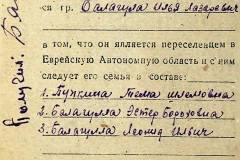 гр. Балагула Илья Лазаревич
в том, что он является переселенцем в
Еврейскую Автономную область и с ним
следует его семья в составе:
1. Пупкина Тема
2. Балагулла Эстер Боруховна
3. Балагулла Леонид Ильич